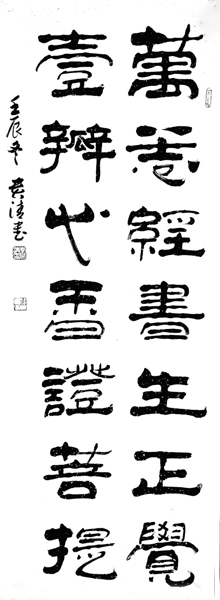 萬卷經書生正覺
壹瓣心香證菩提
壬辰冬 書